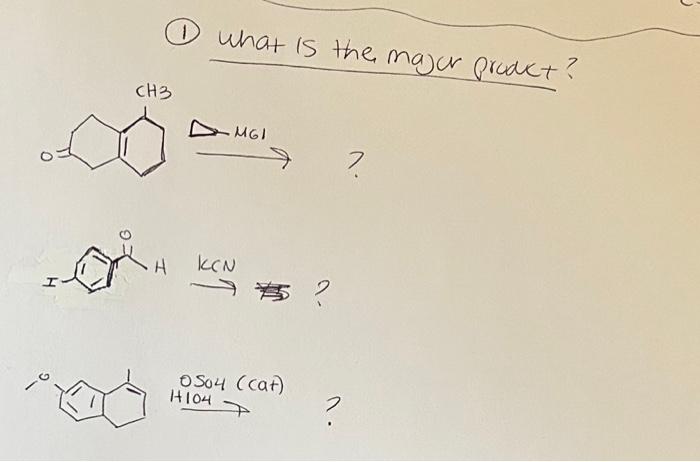 ① What is the major product?
CH3
MGI
O
?
O
H
KCN
I
?
O
OSO4 (cat)
HIO4
?